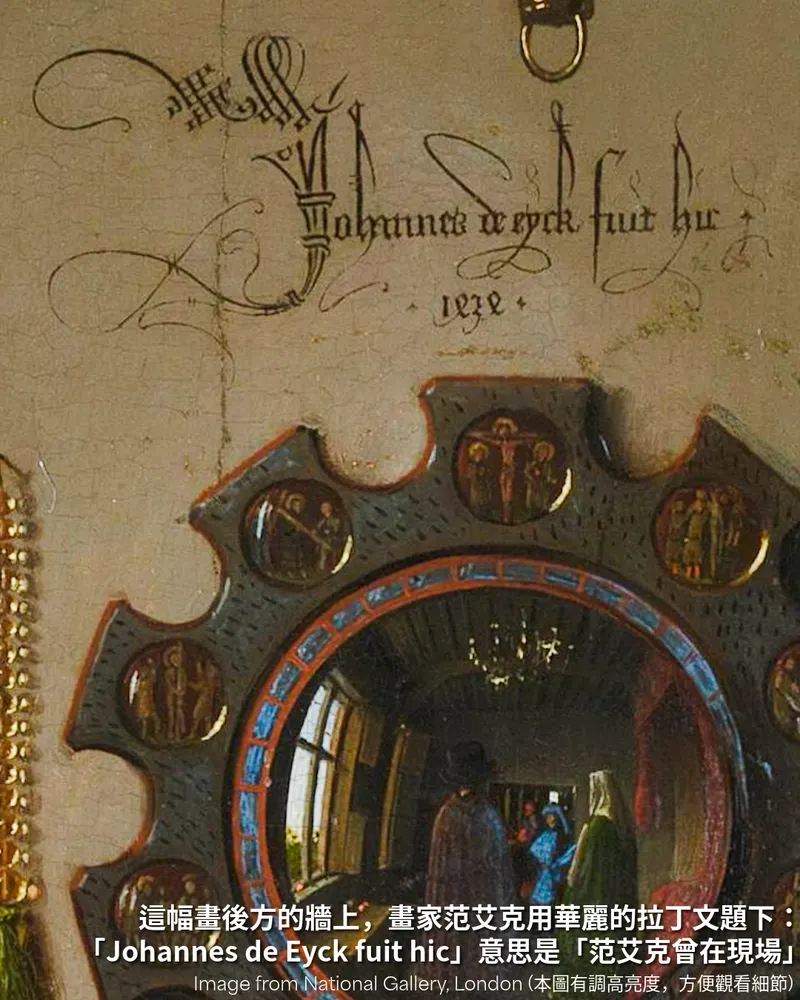 Johannes de eyck fuit hic
1434
這幅畫後方的牆上，畫家范艾克用華麗的拉丁文題下：
「Johannes de Eyck fuit hic」意思是「范艾克曾在現場」
Image from National Gallery, London (本圖有調高亮度，方便觀看細節)